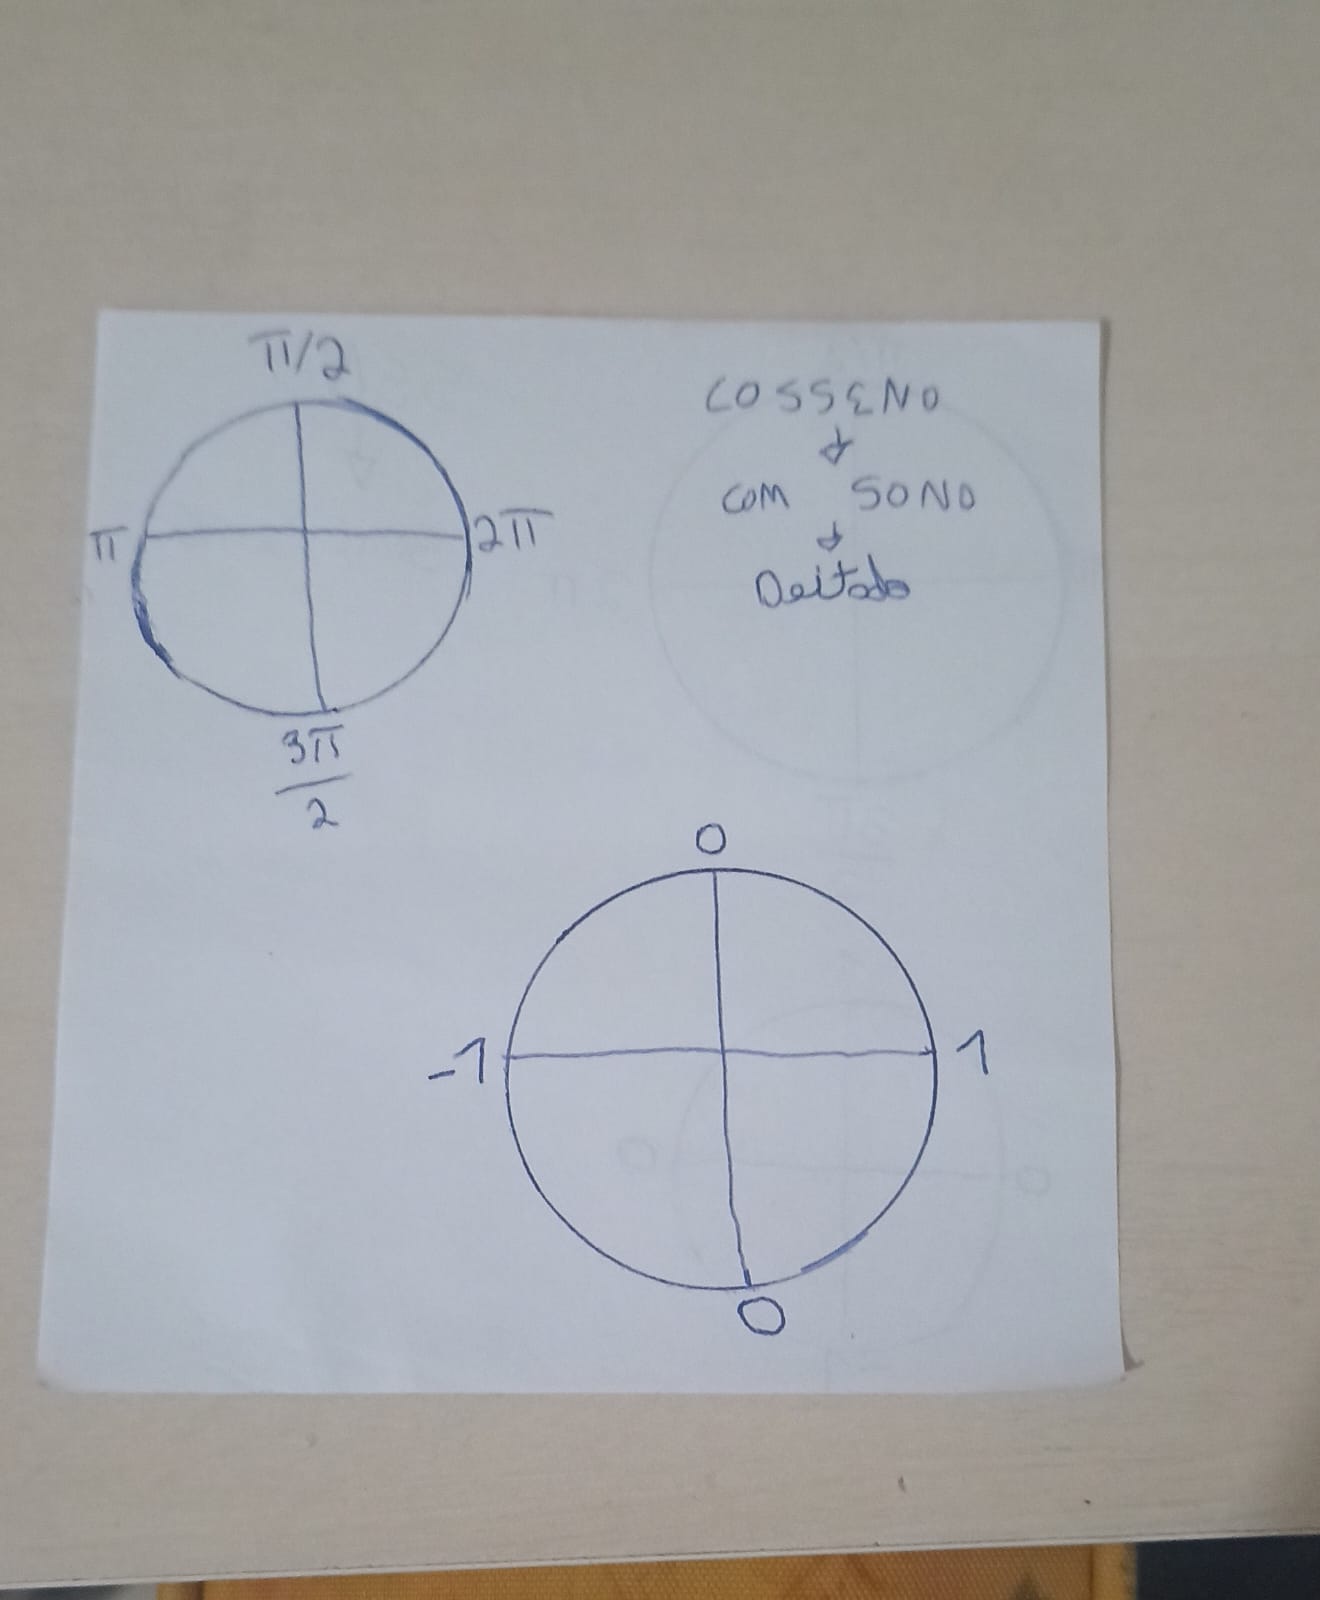 π/2
π 2π
3π
2
COSSENO
↓
COM SONO
↓
Deitado
0
-1 1
0